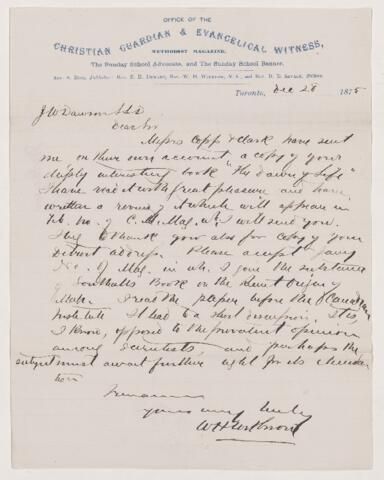 OFFICE OF THE
CHRISTIAN GUARDIAN & EVANGELICAL WITNESS,
METHODIST MAGAZINE,
The Sunday School Advocate, and The Sunday School Banner.
Toronto, Dec 28 1875
J W Dawson LLD
Dear Sir
Messrs Copp & Clark have sent
me on their own account a copy of your
deeply interesting book "The Dawn of Life"
I have read it with great pleasure and have
written a review of it which will appear in
Feb. No. of C. M. Mag. wh. I will send you.
I beg to thank you also for copy of your
Detroit address. Please accept Jany
No. of Mag. in wh. I gave the substance
of Southall's Book on the Recent Origin of
Man. I read the paper before the Canadian
Institute & had a short discussion. It is,
I know, opposed to the prevalent opinion
among Scientists, and perhaps the
subject must await further light for its
tion
I remain
yours very truly
W H Withrow